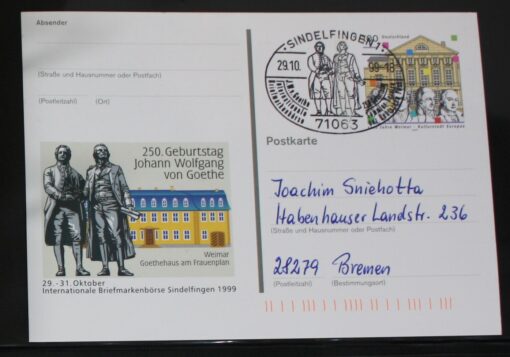 Absender
(Straße und Hausnummer oder Postfach)
(Postleitzahl) (Ort)
250. Geburtstag
Johann Wolfgang
von Goethe
Weimar
Goethehaus am Frauenplan
29. - 31. Oktober
Internationale Briefmarkenbörse Sindelfingen 1999
SINDELFINGEN 1
29.10.
71063
Deutschland
Postkarte
Joachim Sniehotta
Habenhauser Landstr. 236
(Straße und Hausnummer oder Postfach)
28279 Bremen
(Postleitzahl) (Bestimmungsort)